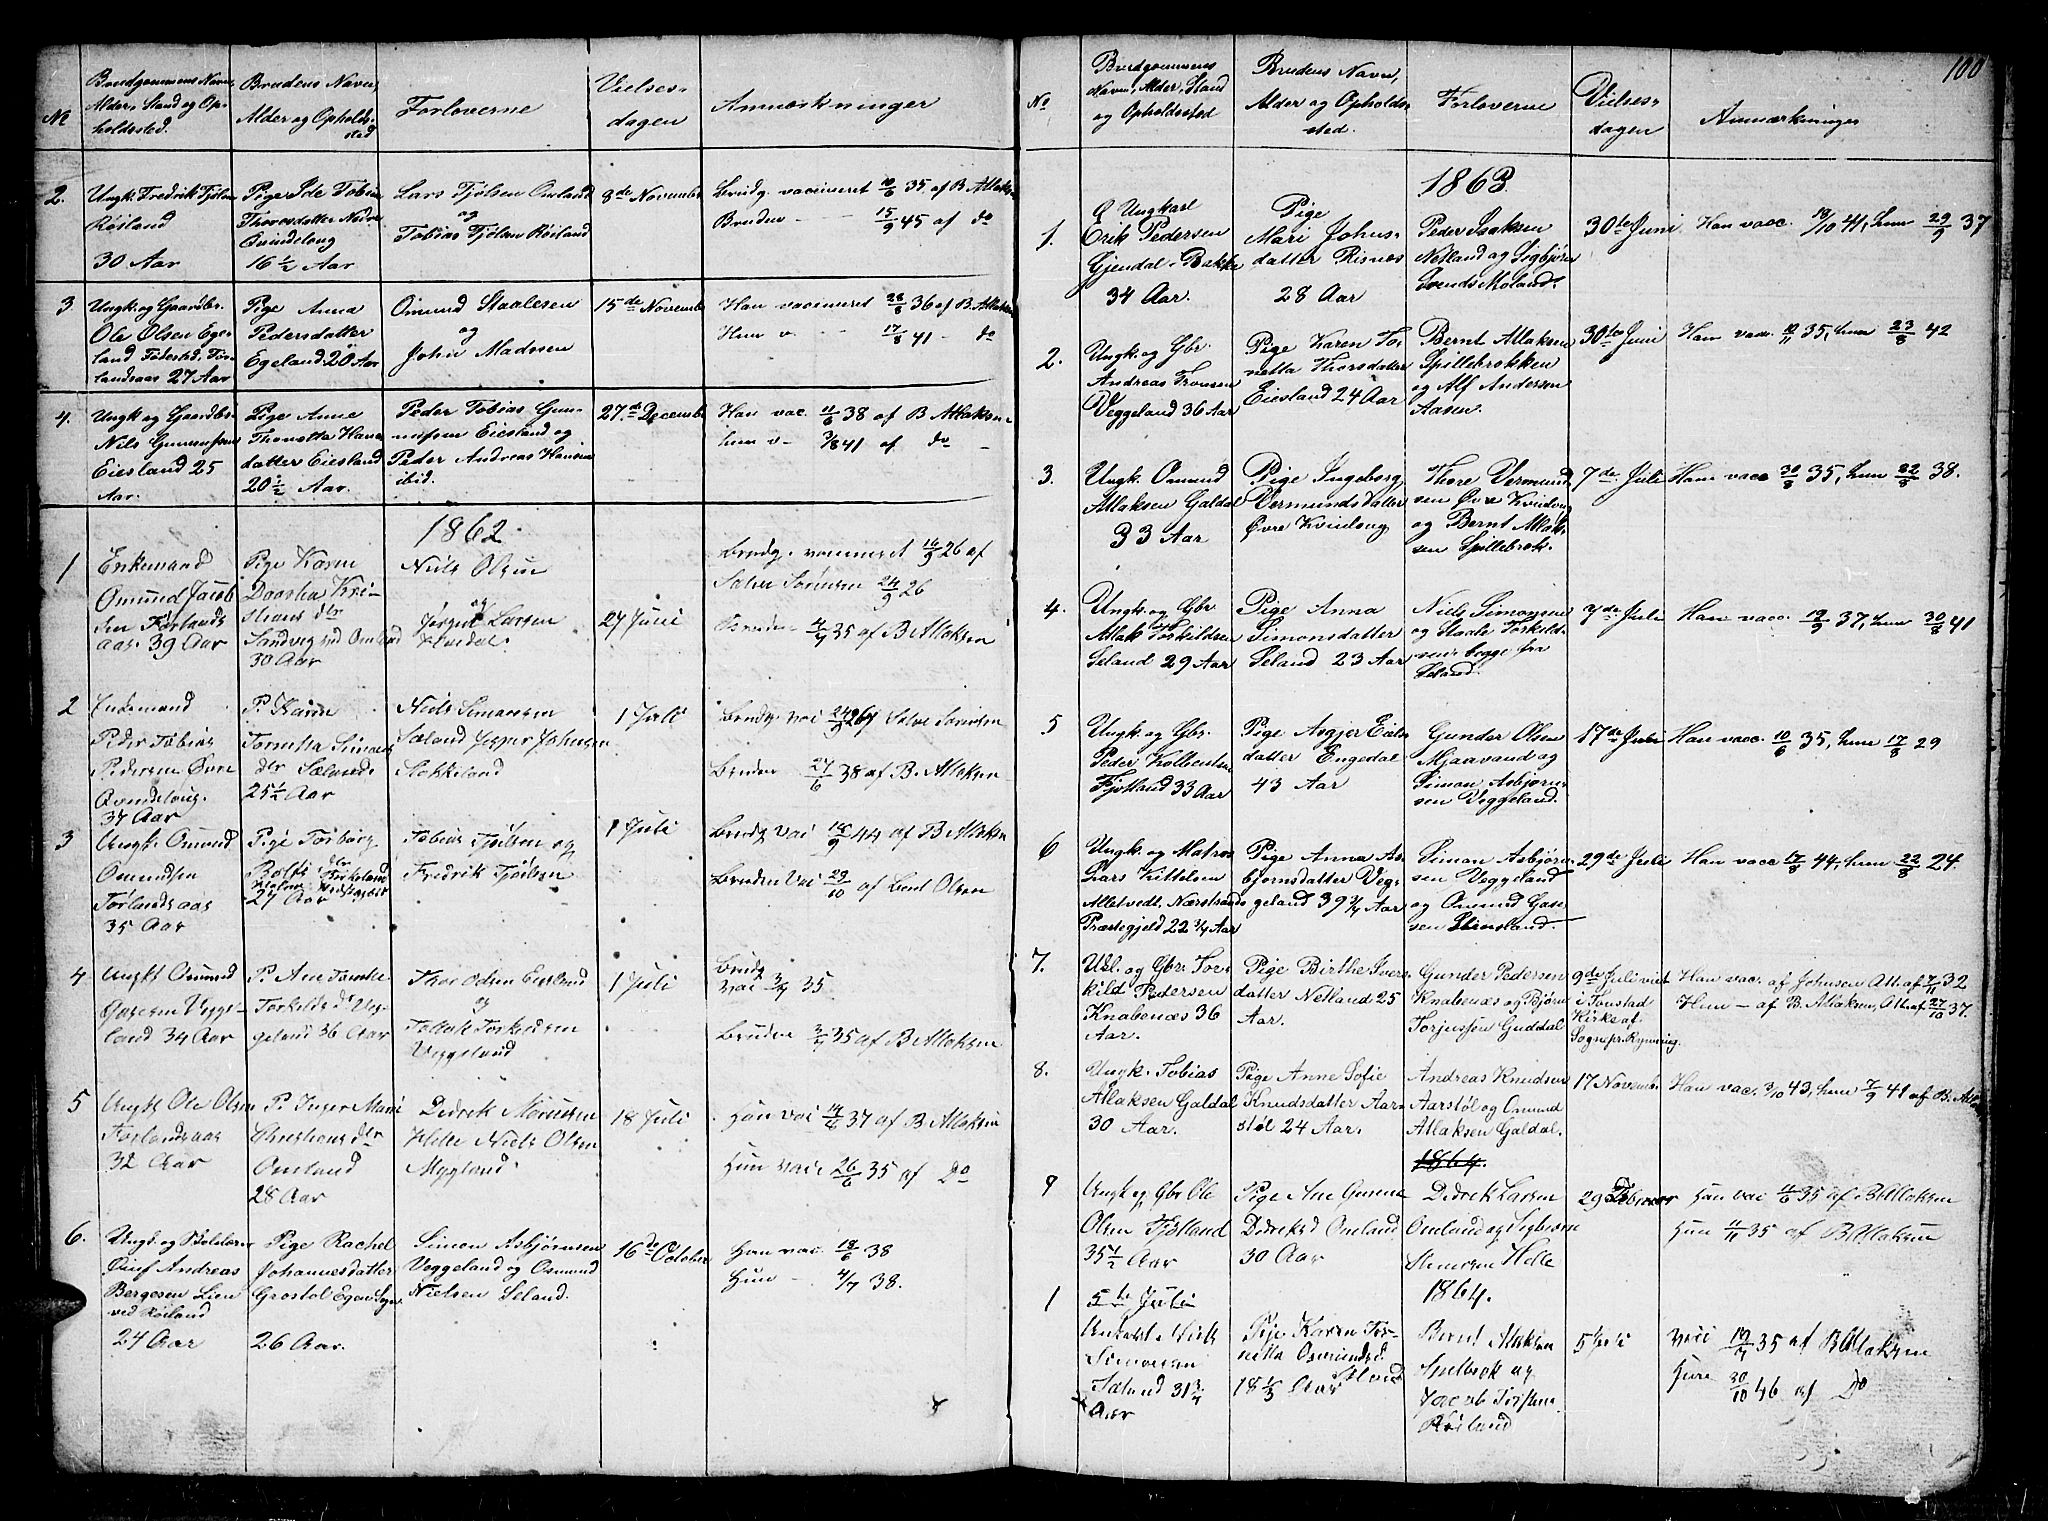 Brudgommens Navn,
Alder, Stand og Op-
holdssted.
Brudens Navn,
Alder og Opholds-
sted
Forloverne
Vielses-
dagen
Anmærkninger
No
2.
Ungk. Fredrik Tjølsen
Røiland
30 Aar
Pige Ide Tobine
Thoresdatter Nedre
Qvindelong
16 1/2 Aar
Lars Tjølsen Omland
og
Tobias Tjølsen Røiland
8de November
Brudg. vaccineret 10/6 35 af B. Atlaksen
Bruden - - 15/9 45 af do
3.
Ungk. og Gaardbr.
Ole Olsen Ege-
land Fødested, Tør-
landsaas 27 Aar
Pige Anna
Pedersdatter
Egeland 20 Aar
Omund Staalesen
og
John Madssen
15de November
Han vaccineret 28/8 36 af B. Atlaksen
Hun v. - - 17/8 41 - do
4.
Ungk. og Gaardbr.
Nils Gunnufsen
Eiesland 25
Aar.
Pige Anne
Thonetta Hans-
datter Eiesland
20 1/2 Aar.
Peder Tobias Gun-
nufsen Eiesland og
Peder Andreas Hansen
ibid.
27de December
Han vac. 11/6 38 af B Atlaksen
hun v- 3/8 41 af do -
1862.
1
Enkemand
Omund Jacob
sen Tørlands
aas. 39 Aar
Pige Karen
Dorthea Kri-
stians dtr
Sandvig ved Omland
30 Aar
Niels Olsen
og
Jesper Larsen
Kvedal.
24 Juli
Brudg. vaccineret 14/9 26 af
Salve Sørensen 24/9 26
Bruden - 4/9 35 af B. Atlaksen
2
Enkemand
Peder Tobias
Pedersen Øvre
Qvindelong.
37 Aar
P. Karen
Tornetta Simons
dtr Sæland.
25 1/2 Aar
Niels Simonsen
Sæland Jesper Johnsen
Stokkeland
1 Juli
Brudg. vac 24/9 26 af Salve Sørensen
Bruden 27/6 38 af B. Atlaksen
3
Ungk. Omund
Omundsen
Tørlandsaas
35 Aar
Pige Torborg
27 Aar
Tobias Tjølsen og
Fredrik Tjølsen
1 Juli
Brudg vac 18/9 44 af B Atlaksen
Bruden Vac 29/10 af Bent Olsen
4
Ungkl Omund
Gasesen Vegge-
land 34 Aar
P. Ane Tomine
Torkilds d Veg-
geland 36 Aar
Thor Odsen Eiesland
og
Tollak Torkildsen
Veggeland
1 Juli
Brudg
vac 3/7 35
Bruden 2/7 35 af B Atlaksen
5
Ungkl Ole Olsen
Tørlandsaas
32 Aar
P. Inger Marie
Christians dtr
Omland
28 Aar
Didrik Monssen
Helle Niels Olsen
Mygland.
18 Juli
Han vac 14/6 37 af B. Atlaksen
Hun vac 26/6 35 af Do
6.
Ungk. og
Andreas
Bergesen Lien
ved Røiland
24 Aar
Pige Rachel
Johannesdatter
Grostøl Egen Sogn
26 Aar.
Simon Asbjørnsen
Veggeland og Osmund
Nielsen Seland.
16de October
Han vac. 18/6 38
Hun - 4/7 38.
100
No
Brudgommens
Navn, Alder, Stand
og Opholdssted
Brudens Navn,
Alder og Opholds-
sted.
Forloverne
Vielses-
dagen
Anmærkninger
1863.
1.
Ungkarl
Erik Pedersen
Gjendal i Bakke
34 Aar.
Pige
Mari Johns-
datter Risnes
28 Aar
Peder Isaksen
Netland og Sigbjørn
Svends. Moland.
30te Juni
Han vacc. 13/10 41, hun 29/9 37
2.
Ungk. og Gbr.
Andreas Tronsen
Veggeland 36 Aar
Pige Karen To-
netta Thorsdatter
Eiesland 24 Aar
Bernt Atlaksen
Spillebrokken
og Alf Andersen
Aasen.
30te Juni
Han vacc. 10/11 35, hun 23/8 42
3.
Ungk. Omund
Atlaksen Galdal
33 Aar
Pige Ingeborg
Vermundsdatter
Øvre Kvinlog
Thore Vermund-
sen Øvre Kvinlog
og Bernt Atlak-
sen Spillebrok.
7de Juli
Han vacc 30/8 35, hun 22/8 38.
4.
Ungk. og Gbr.
Atlak Torkildsen
Seland 29 Aar
Pige Anna
Simonsdatter
Seland 23 Aar
Niels Simonsen
og Staale Torkild-
sen begge fra
Seland.
7de Juli
Han vacc. 19/9 37, hun 30/8 41
5
Ungk. og Gbr.
Peder Tolleivsen
Fjotland 33 Aar
Pige Asgjer Eiels-
datter Engedal
43 Aar
Gunder Olsen
Mjaavand og
Simon Asbjørn-
sen Veggeland.
17de Juli
Han vacc. 10/6 35, hun 17/8 29
6
Ungk. og Matros
Lars Kittelsen
Alletvedt. Nærstrands
Præstegjeld 22 3/4 Aar
Pige Anna As-
bjørnsdatter Veg-
geland 39 3/4 Aar
Simon Asbjørn-
sen Veggeland
og Omund Gase-
sen Stensland.
29de Juli
Han vacc 17/8 44, hun 22/8 24.
7.
Ubl. og Gbr. Tor-
kild Pedersen
Knabenæs 36
Aar.
Pige Birthe Ivers-
datter Netland 25
Aar.
Gunder Pedersen
Knabenæs og Bjørn
Torjussen Guddal
9de Juli viet
i Tonstad
Kirke af
Sognepr. Rynning.
Han vac. af Johnsen Att. af 7/11 32
Hun - af B. Atlaksen, Att. af 27/10 37.
8.
Ungk. Tobias
Atlaksen Galdal
30 Aar.
Pige Anne Sofie
Knudsdatter Aar-
støl 24 Aar.
Andreas Knudsen
Aarstøl og Omund
Atlaksen Galdal.
17 November
Han vac. 3/10 43, hun 7/9 41 af B. Atlaksen
1864.
9
Ungk og Gbr Ole
Olsen Fjotland
35 1/2 Aar
Pige Ane Gurine
Didriks d Omland
30 Aar
Didrik Larsen
Omland og Sigbjørn
Stenersen Helle
29 Februar
Han vac 11/6 35 af B Atlaksen
Hun 11/11 35 af B Atlaksen
1864.
1
5te Juli
Ungkl. Niels
Simonsen
Sæland 31 3/4
Aar
Pige Karen Tor-
netta Osmundsd.
18 1/3 Aar
Bernt Atlaksen
Spelbrok og
Jacob Torstens
Røiland
5 Juli
vac 10/7 35 af B Atlaksen
Hun 30/10 46 af Do